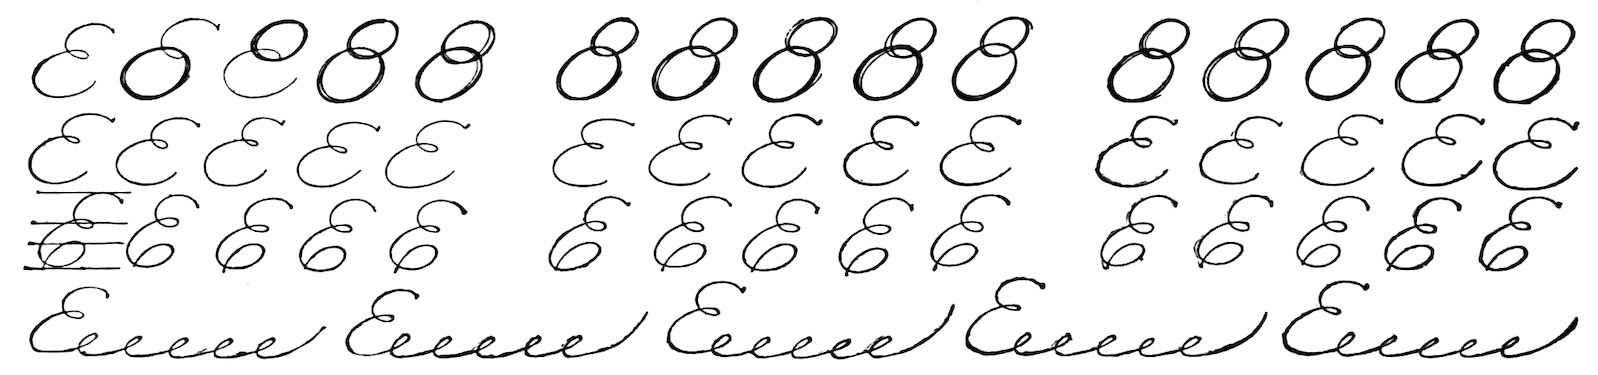 E E E 8 8 8 8 8 8 8 8 8 8 8 8
E E E E E E E E E E E E E E E
E E E E E E E E E E E E E E E
Eeeee Eeeee Eeeee Eeeee Eeeee